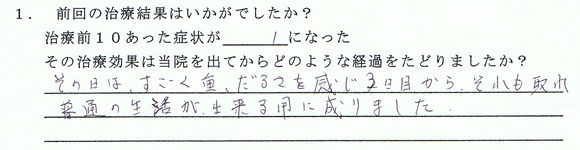 １． 前回の治療結果はいかがでしたか？
治療前１０あった症状が 1 になった
その治療効果は当院を出てからどのような経過をたどりましたか？
その日は、すごく重、だるさを感じ3日目から、それも取れ
普通の生活が、出来る用に成りました.